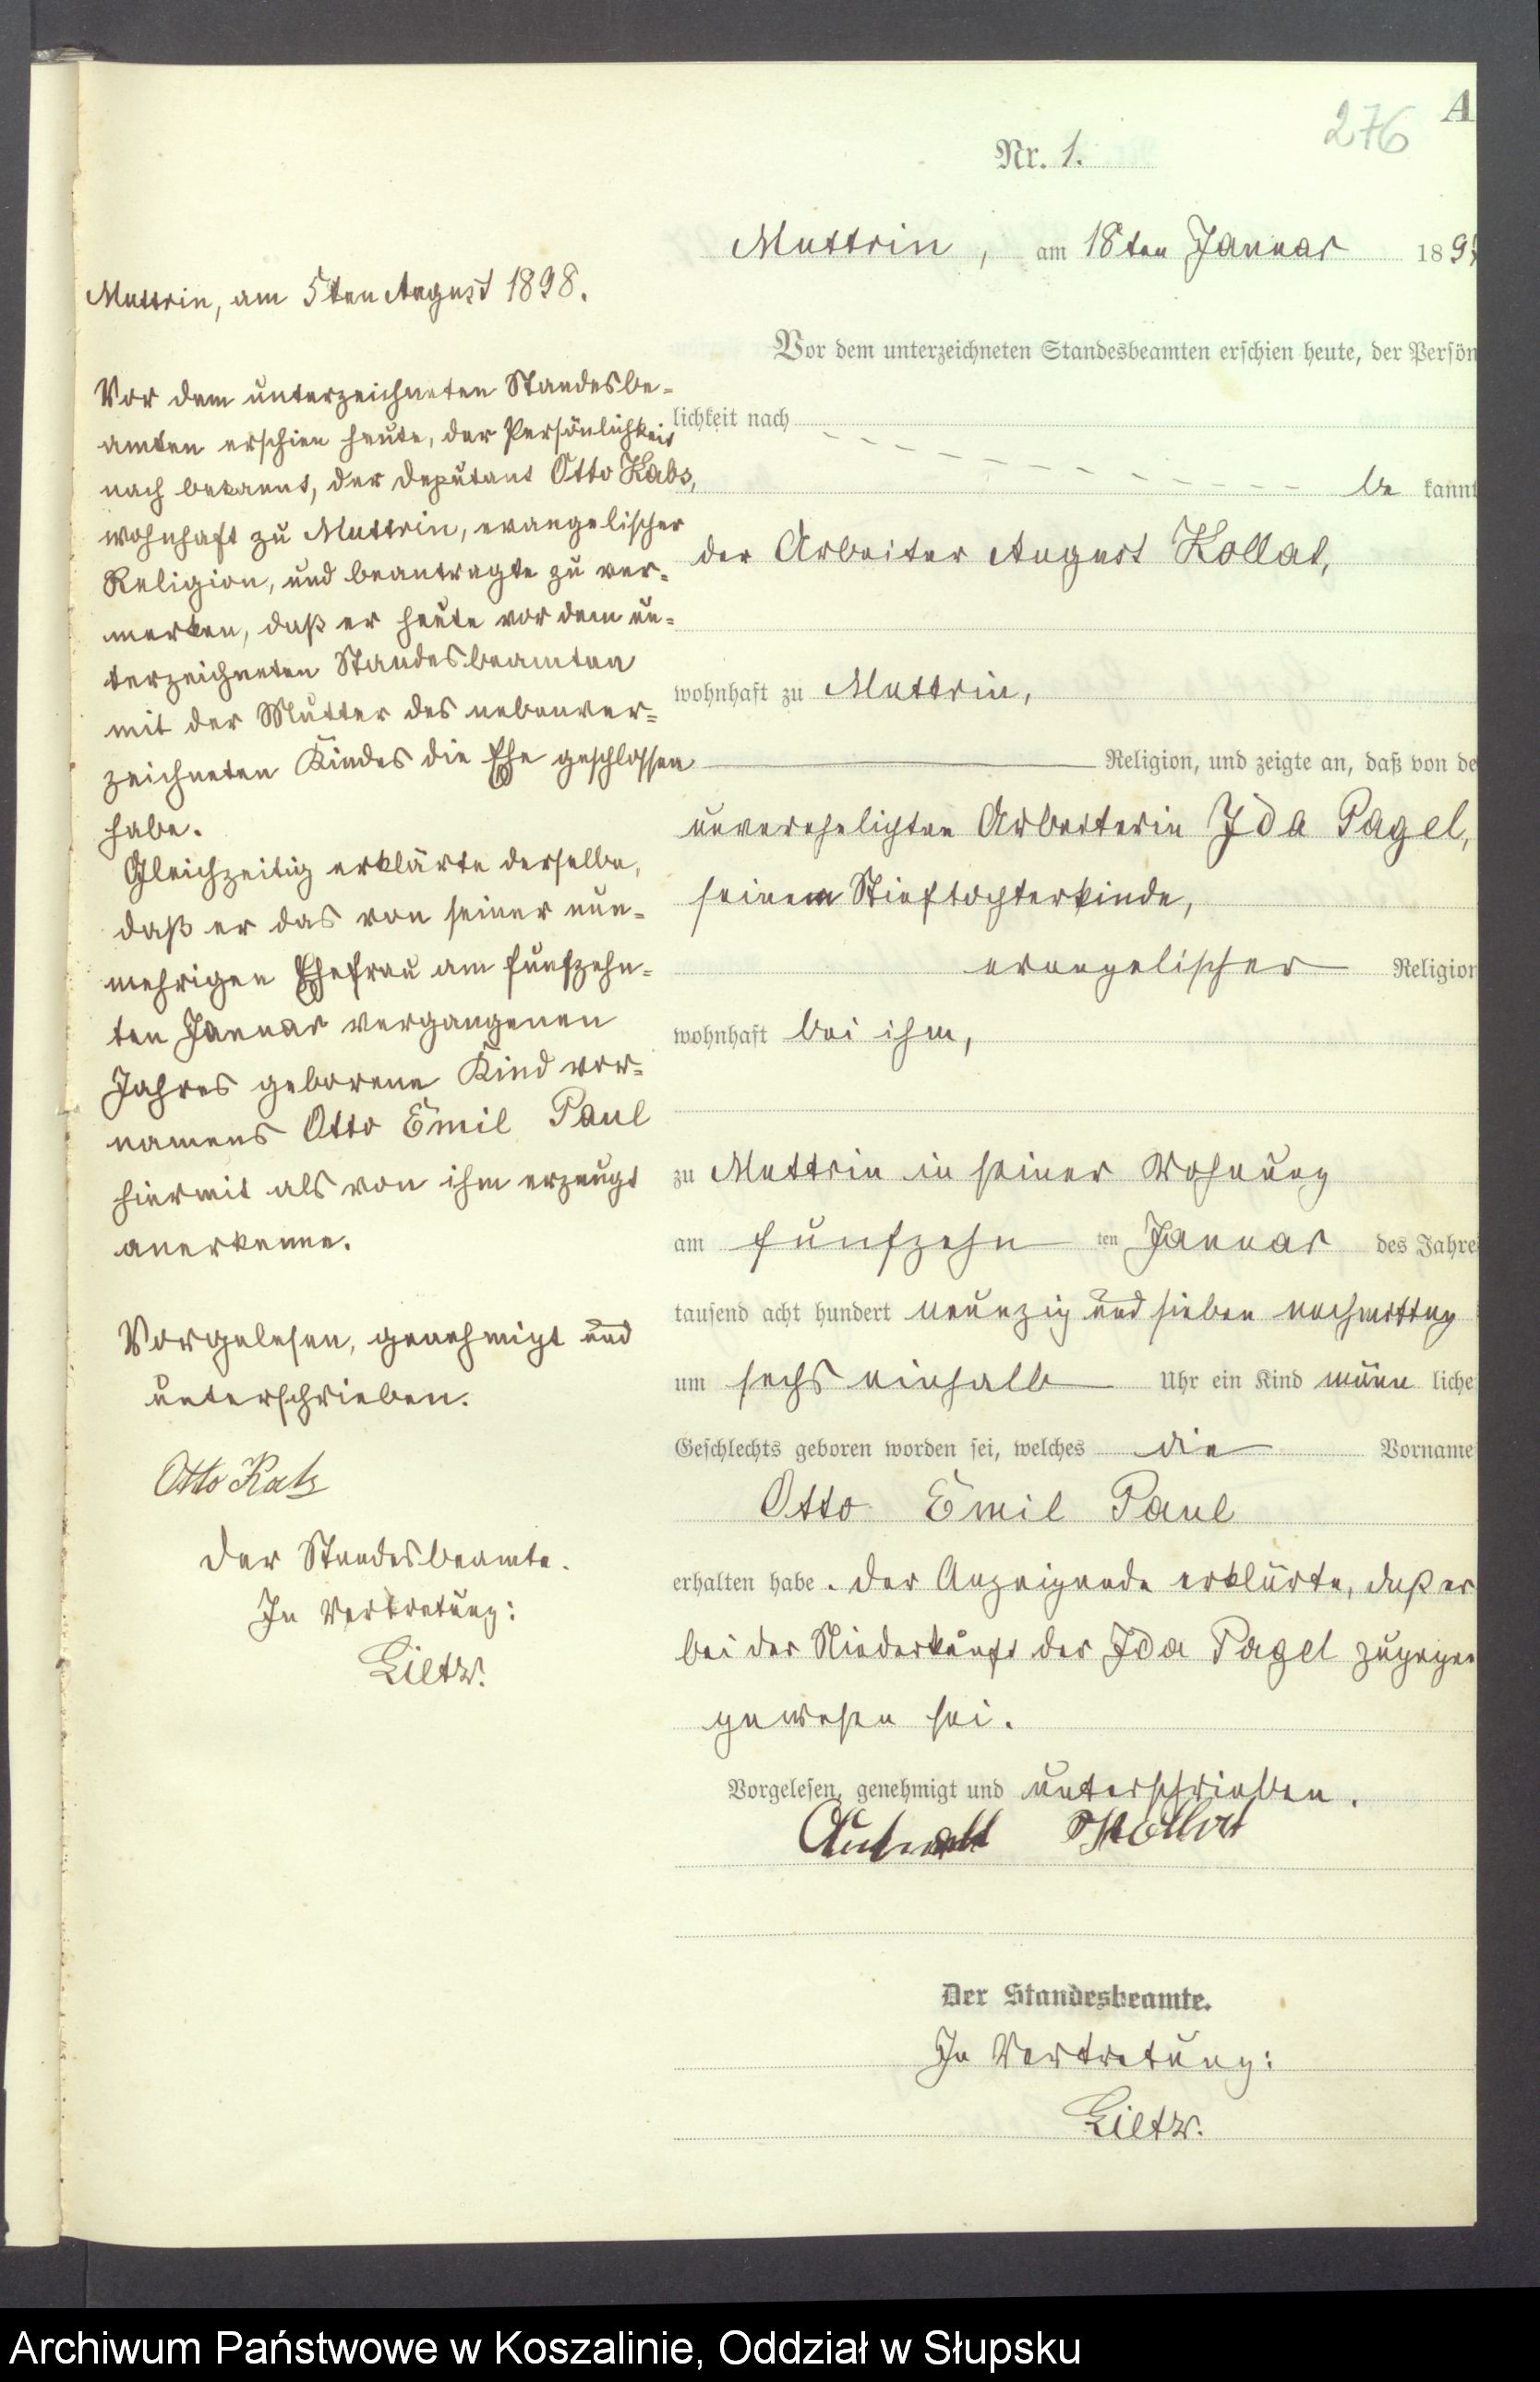 276
A
Nr. 1.
Muttrin, am 18ten Januar 189
Vor dem unterzeichneten Standesbeamten erschien heute, der Persön
lichkeit nach
be kannt
der Arbeiter August Kollat,
wohnhaft zu Muttrin,
Religion, und zeigte an, daß von de
unverehelichten Arbeiterin Ida Pagel,
seinem Stieftochterkinde,
evangelischer Religion
wohnhaft bei ihm,
zu Muttrin in seiner Wohnung
am fünfzehn ten Januar des Jahre
tausend acht hundert neunzig und sieben nachmittag
um sechs einhalb Uhr ein Kind männ liche
Geschlechts geboren worden sei, welches die Vorname
Otto Emil Paul
erhalten habe. Der Anzeigende erklärte, daß er
bei der Niederkunft der Ida Pagel zugegen
gewesen sei.
Vorgelesen, genehmigt und unterschrieben.
Kollat
Der Standesbeamte.
In Vertretung:
Lietz.
Muttrin, am 5ten August 1898.
Vor dem unterzeichneten Standesbe-
amten erschien heute, der Persönlichkeit
nach bekannt, der Deputant Otto Kabs,
wohnhaft zu Muttrin, evangelischer
Religion, und beantragte zu ver-
merken, daß er heute vor dem un-
terzeichneten Standesbeamten
mit der Mutter des nebenver-
zeichneten Kindes die Ehe geschlossen
habe.
Gleichzeitig erklärte derselbe,
daß er das von seiner nun-
mehrigen Ehefrau am fünfzehn-
ten Januar vergangenen
Jahres geborene Kind vor-
namens Otto Emil Paul
hiermit als von ihm erzeugt
anerkenne.
Vorgelesen, genehmigt und
unterschrieben.
Otto Kabs
Der Standesbeamte.
In Vertretung:
Lietz.
Archiwum Państwowe w Koszalinie, Oddział w Słupsku